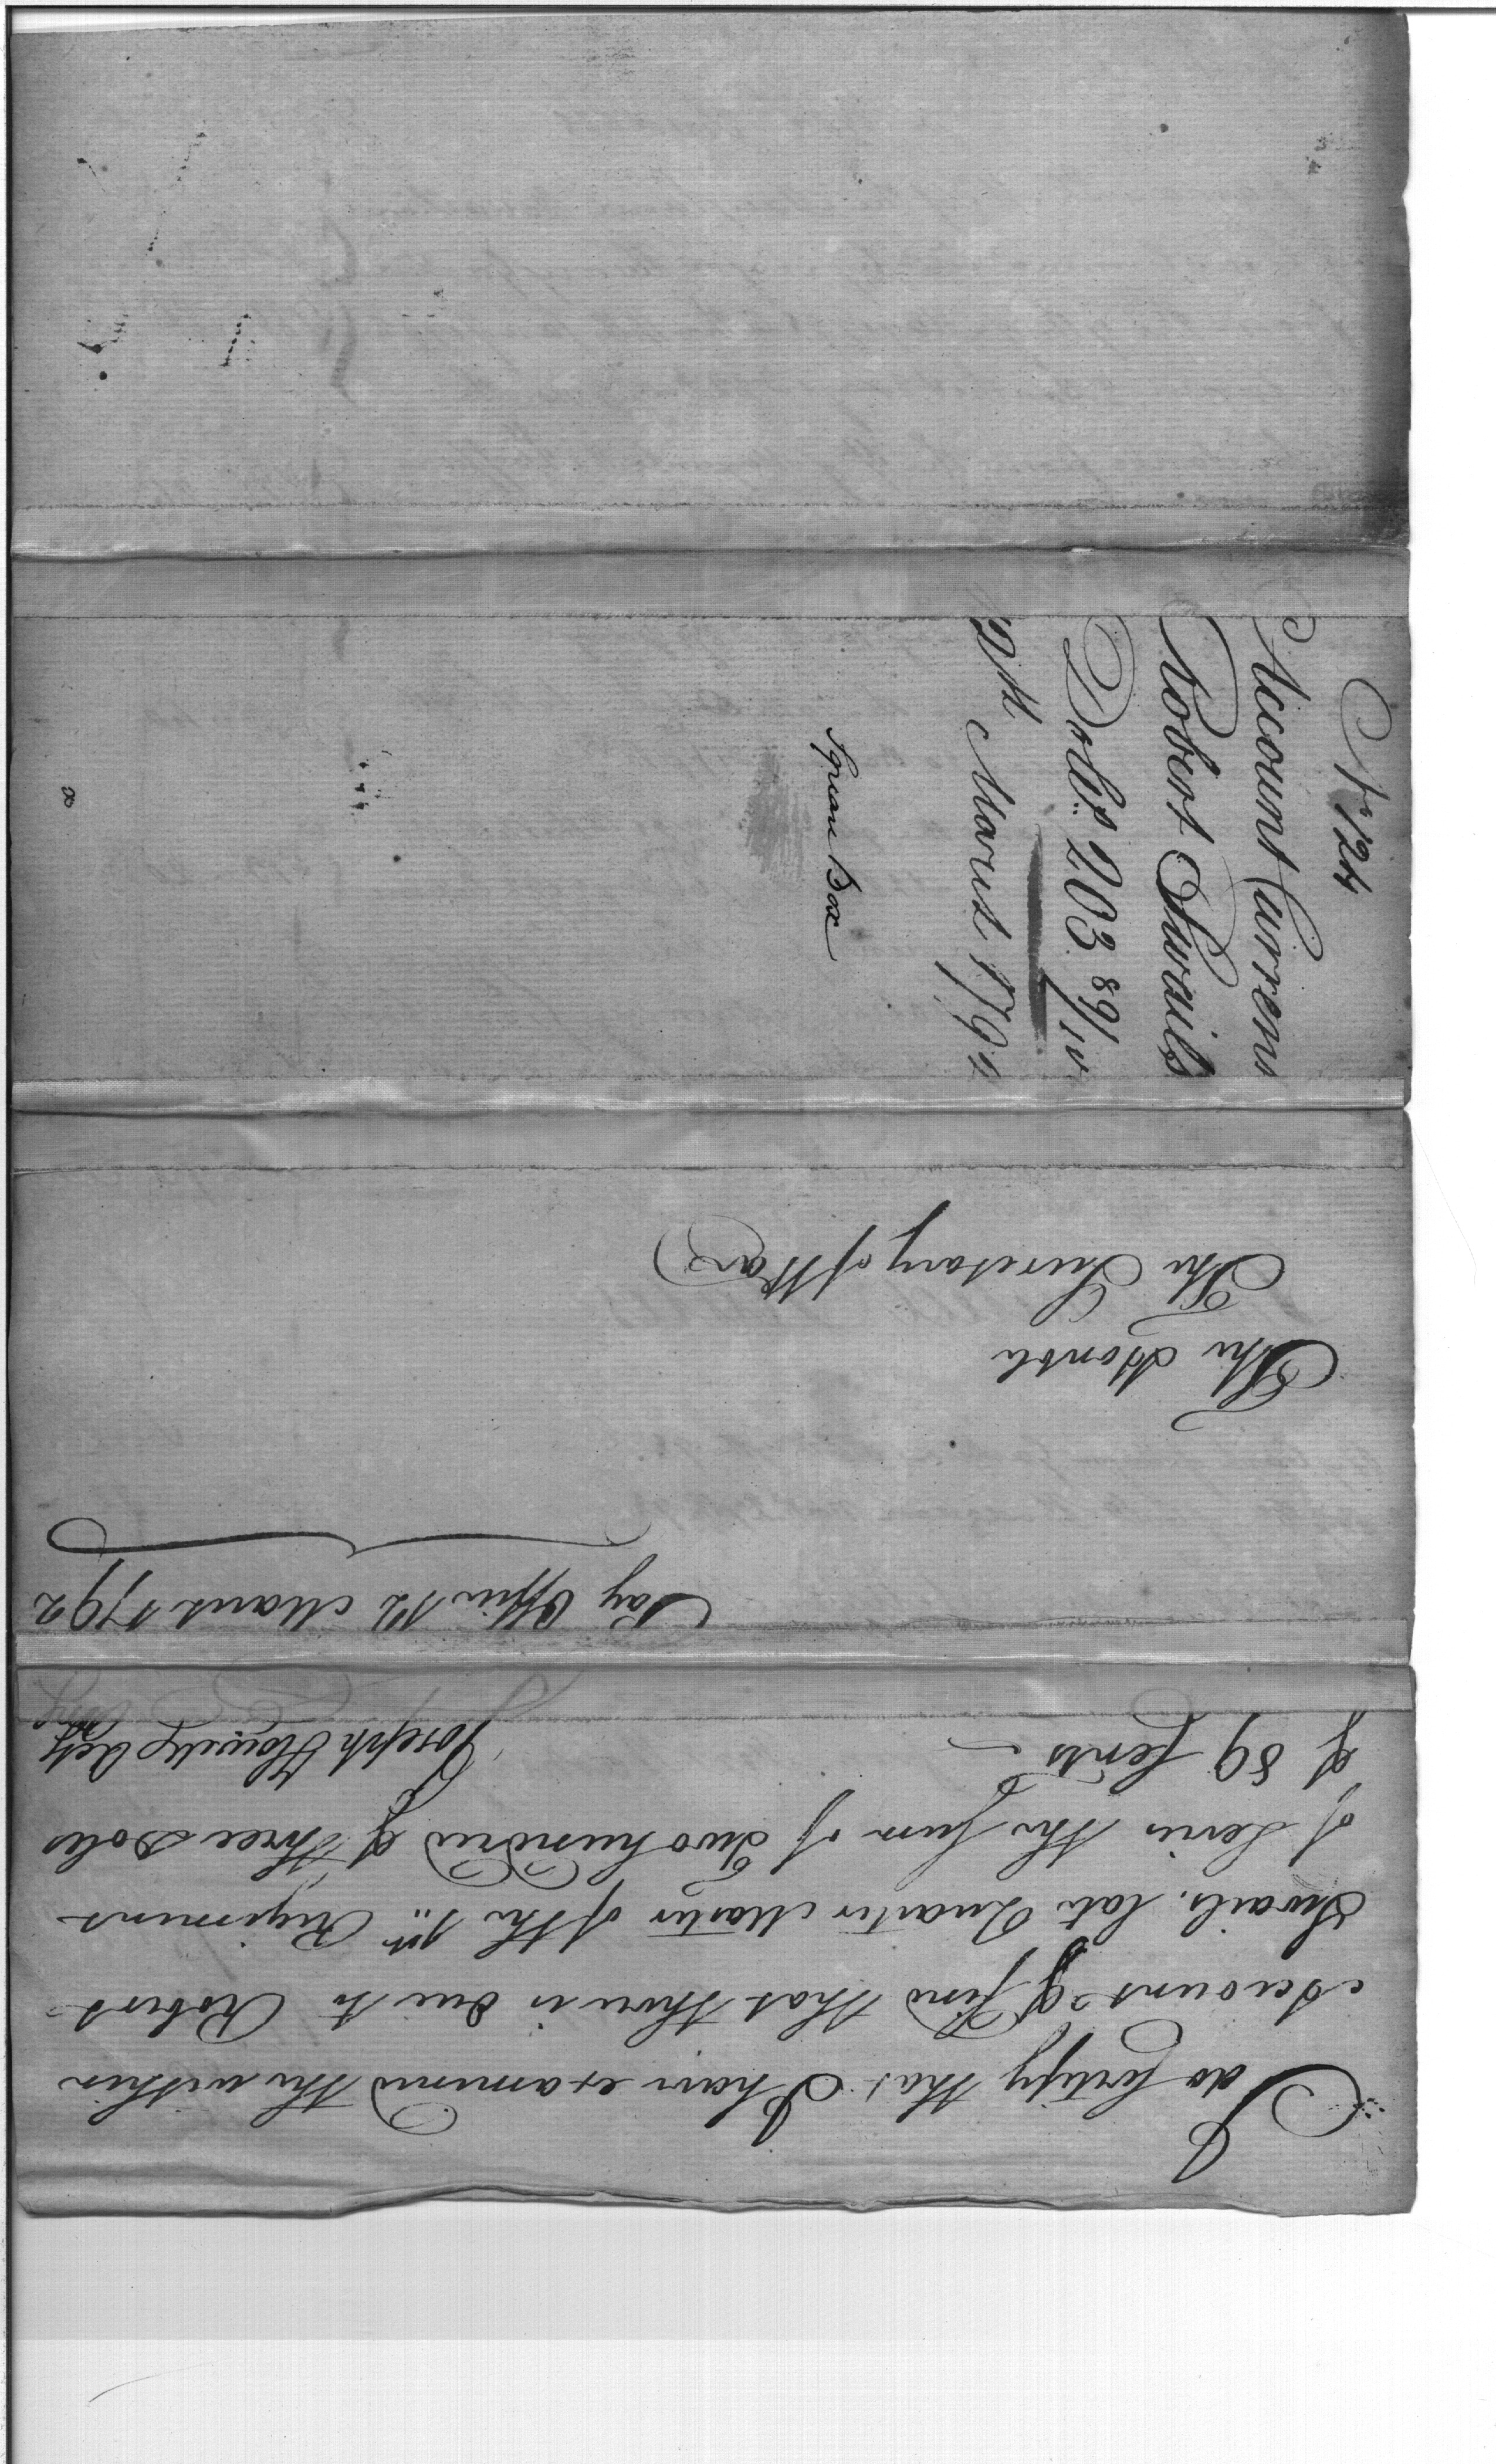 I do certify that I have examined the within
Account & find that there is due to Robert
Swails, late Quarter Master of the 1st Regiment
of Levies the sum of Two hundred & three Dolls
& 89 Cents
Joseph Howell Actt
Pay Office 12 March 1792
The Honble
The Secretary of War
No 124
Account Current
Robert Swails
Dolls 203 89/10
12th March 1792
Square Box